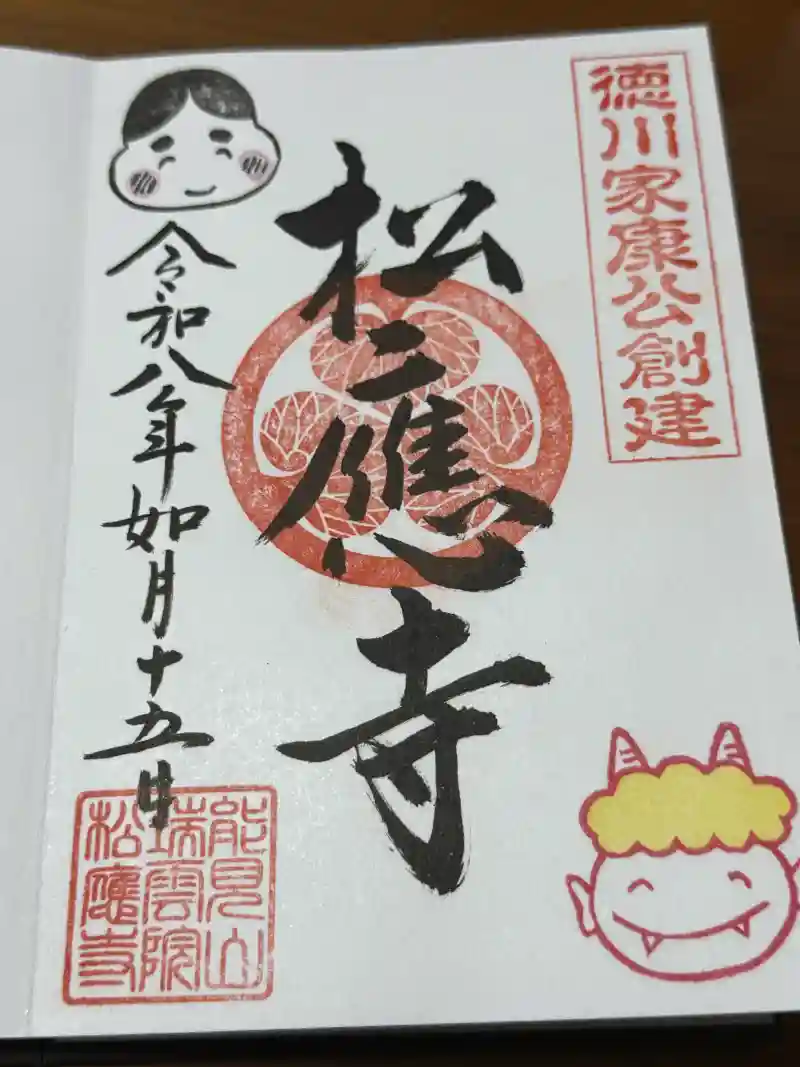 徳川家康公創建
松應寺
令和八年如月十五日
能見山
瑞雲院
松應寺